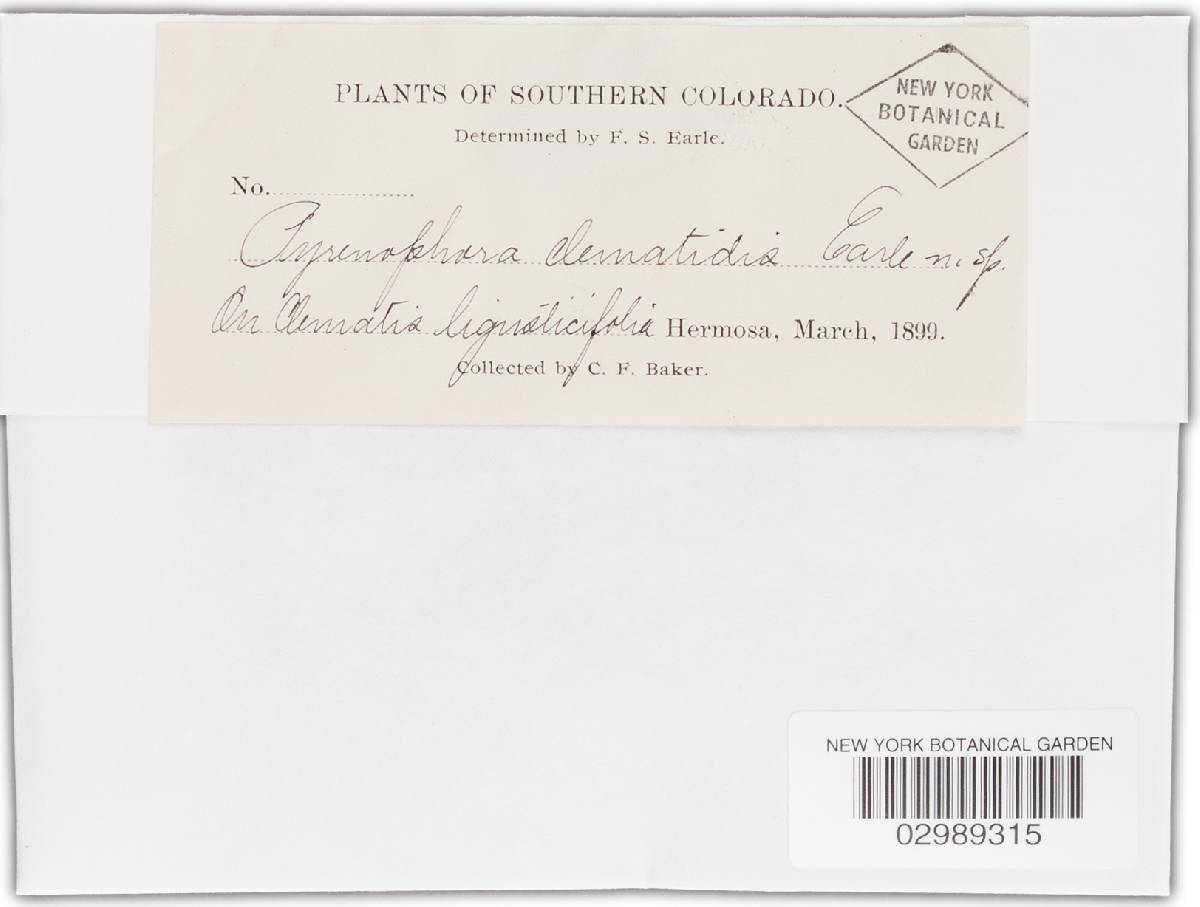 PLANTS OF SOUTHERN COLORADO.
NEW YORK
BOTANICAL
GARDEN
Determined by F. S. Earle.
No.
Pyrenophora clematidis Earle n. sp.
On Clematis ligusticifolia Hermosa, March, 1899.
Collected by C. F. Baker.
NEW YORK BOTANICAL GARDEN
02989315